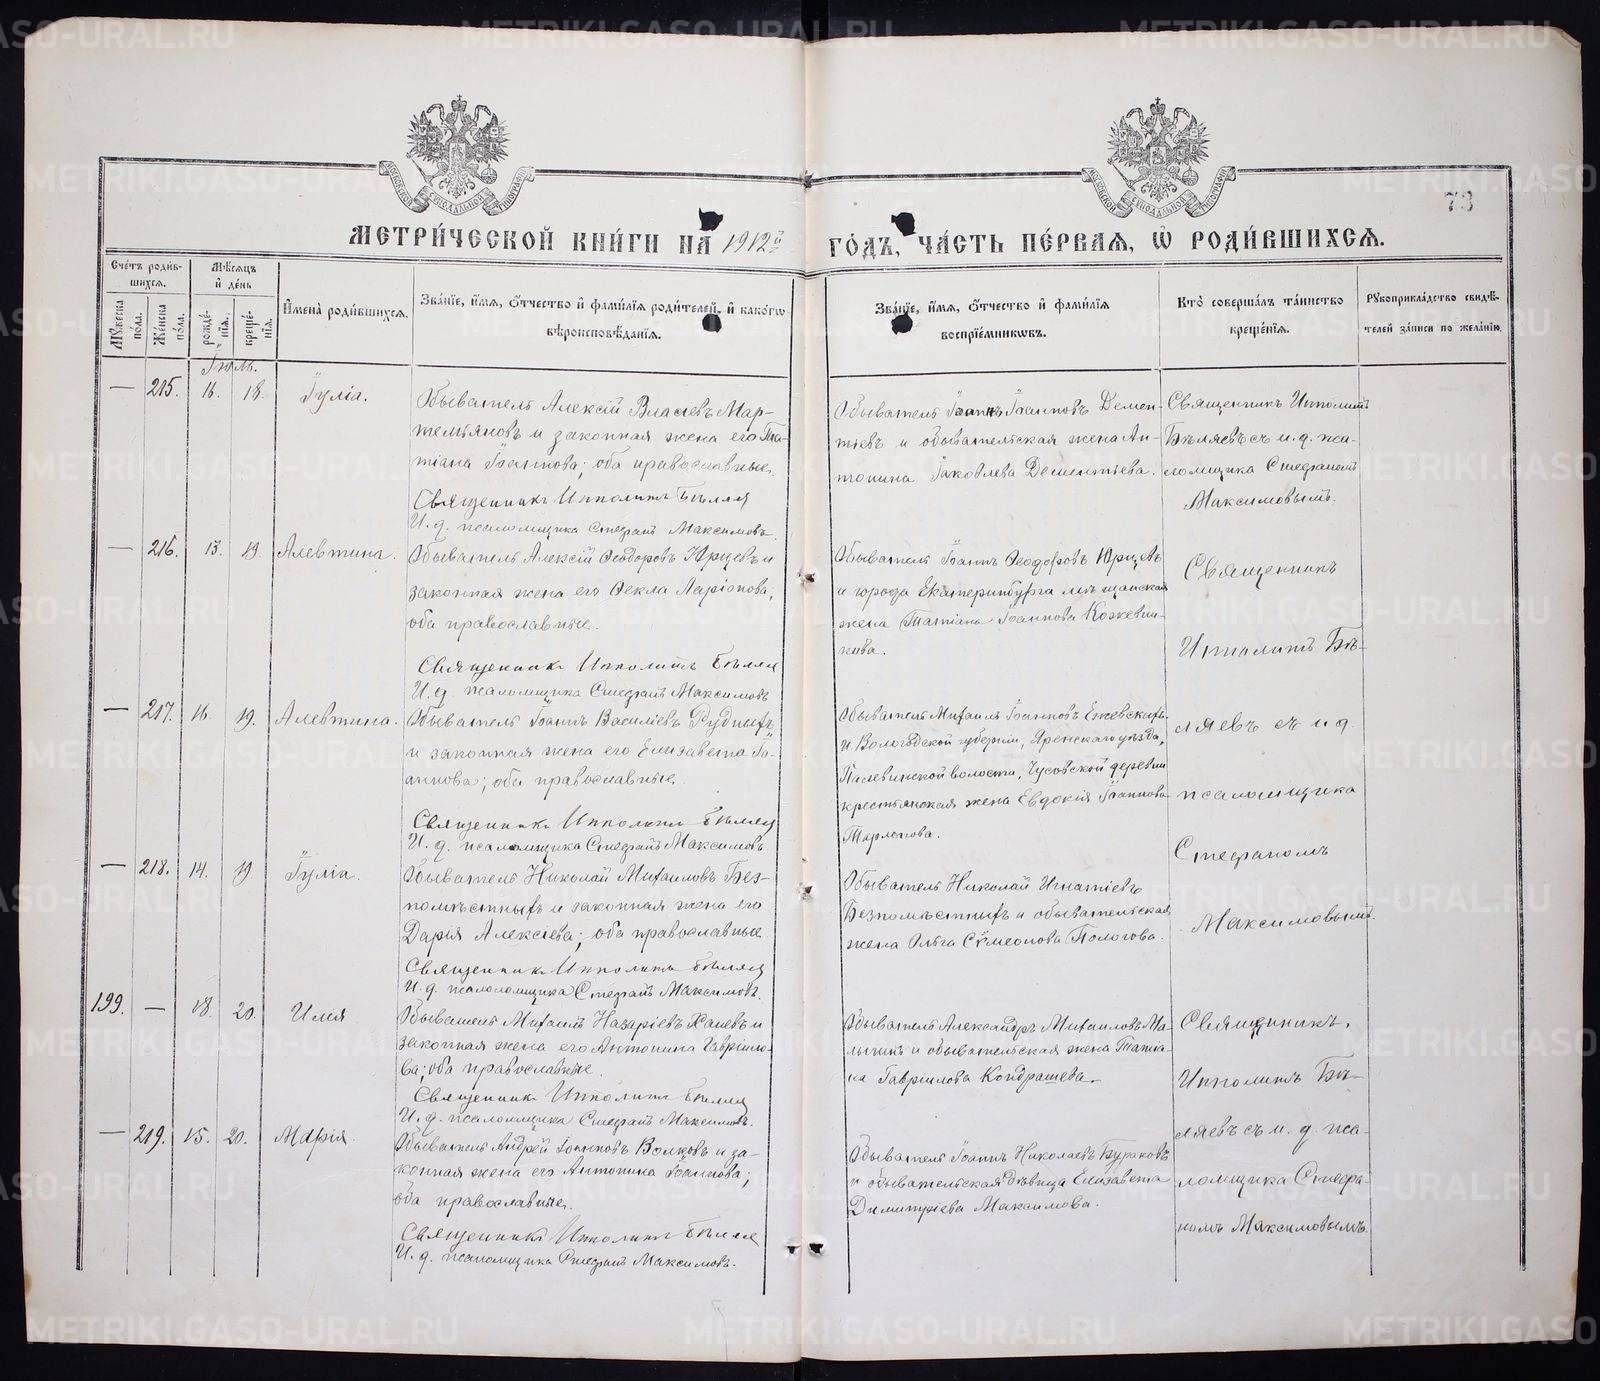 73
МЕТРИ́ЧЕСКОЙ КНИ́ГИ НА 1912й ГО́ДЪ, ЧА́СТЬ ПЕ́РВАЯ, Ѡ҆ РОДИ́ВШИХСЯ.
Сче́тъ роди́в-
шихся.
Мꙋ́жеска по́ла.
Же́нска по́ла.
Мѣ́сяцъ
и҆ де́нь
рожде́-
нїя.
креще́-
нїя.
И҆мена̀ роди́вшихся.
Зва́нїе, и҆́мя, ѻ҆́тчество и҆ фами́лїя роди́телей, и҆ како́гѡ
вѣроисповѣ́данїя.
Зва́нїе, и҆́мя, ѻ҆́тчество и҆ фами́лїя
воспрїе́мникѡвъ.
Кто̀ соверша́лъ та́инство
креще́нїя.
Рꙋкоприкла́дство свидѣ́-
телей за́писи по жела́нїю.
Іюль.
— 215. 16. 18. Іулія.
Обыватель Алексій Власіевъ Мар-
темьяновъ и законная жена его Та-
тіана Іоаннова; оба православные.
Священникъ Ипполитъ Бѣляев
И. д. псаломщика Стефанъ Максимовъ.
Обыватель Іоаннъ Іоанновъ Демен-
тьевъ и обывательская жена Ан-
тонина Іаковлева Дементьева.
Священникъ Ипполитъ
Бѣляевъ съ и. д. пса-
ломщика Стефаномъ
Максимовымъ.
— 216. 13. 19 Алевтина.
Обыватель Алексій Ѳеодоровъ Юрцевъ и
законная жена его Ѳекла Ларіонова,
оба православные.
Священникъ Ипполитъ Бѣляев
И. д. псаломщика Стефанъ Максимовъ
Обыватель Іоаннъ Ѳеодоровъ Юрцевъ
и города Екатеринбурга мѣщанская
жена Татіана Іоаннова Кожевни-
кова.
Священникъ
Ипполитъ Бѣ-
— 217. 16. 19. Алевтина.
Обыватель Іоаннъ Василіевъ Рудныхъ
и законная жена его Елизавета Іо-
аннова; оба православные.
Священникъ Ипполитъ Бѣляев
И. д. псаломщика Стефанъ Максимовъ
Обыватель Михаилъ Іоанновъ Ежевскихъ
и Вологодской губерніи, Яренскаго уѣзда,
волости, Чусовской деревни
крестьянская жена Евдокія Іоаннова
ляевъ съ и д.
псаломщика
— 218. 14. 19 Іулія.
Обыватель Николай Михаиловъ Без-
помѣстныхъ и законная жена его
Дарія Алексіева; оба православные
Священникъ Ипполитъ Бѣляев
И. д. псаломщика Стефанъ Максимовъ.
Обыватель Николай Игнатіевъ
Безпомѣстныхъ и обывательская
жена Ольга Сѵмеонова Пологова.
Стефаномъ
Максимовымъ.
199. — 18. 20. Илія
Обыватель Михаилъ Назаріевъ Халевъ и
законная жена его Антонина Гавріило-
ва; оба православные.
Священникъ Ипполитъ Бѣляев
И. д. псаломщика Стефанъ Максимовъ.
Обыватель Александръ Михаиловъ Ма-
лыгинъ и обывательская жена Татіа-
на Гавріилова Кондрашева.
Священникъ
Ипполитъ Бѣ-
— 219. 15. 20. Марія.
Обыватель Андрей Іоанновъ Волковъ и за-
конная жена его Антонина Іоаннова;
оба православные.
Священникъ Ипполитъ Бѣляев
И. д. псаломщика Стефанъ Максимовъ.
Обыватель Іоаннъ Николаевъ Бураковъ
и обывательская дѣвица Елизавета
Димитріева Максимова.
ляевъ съ и. д. пса-
ломщика Стефа-
номъ Максимовымъ.